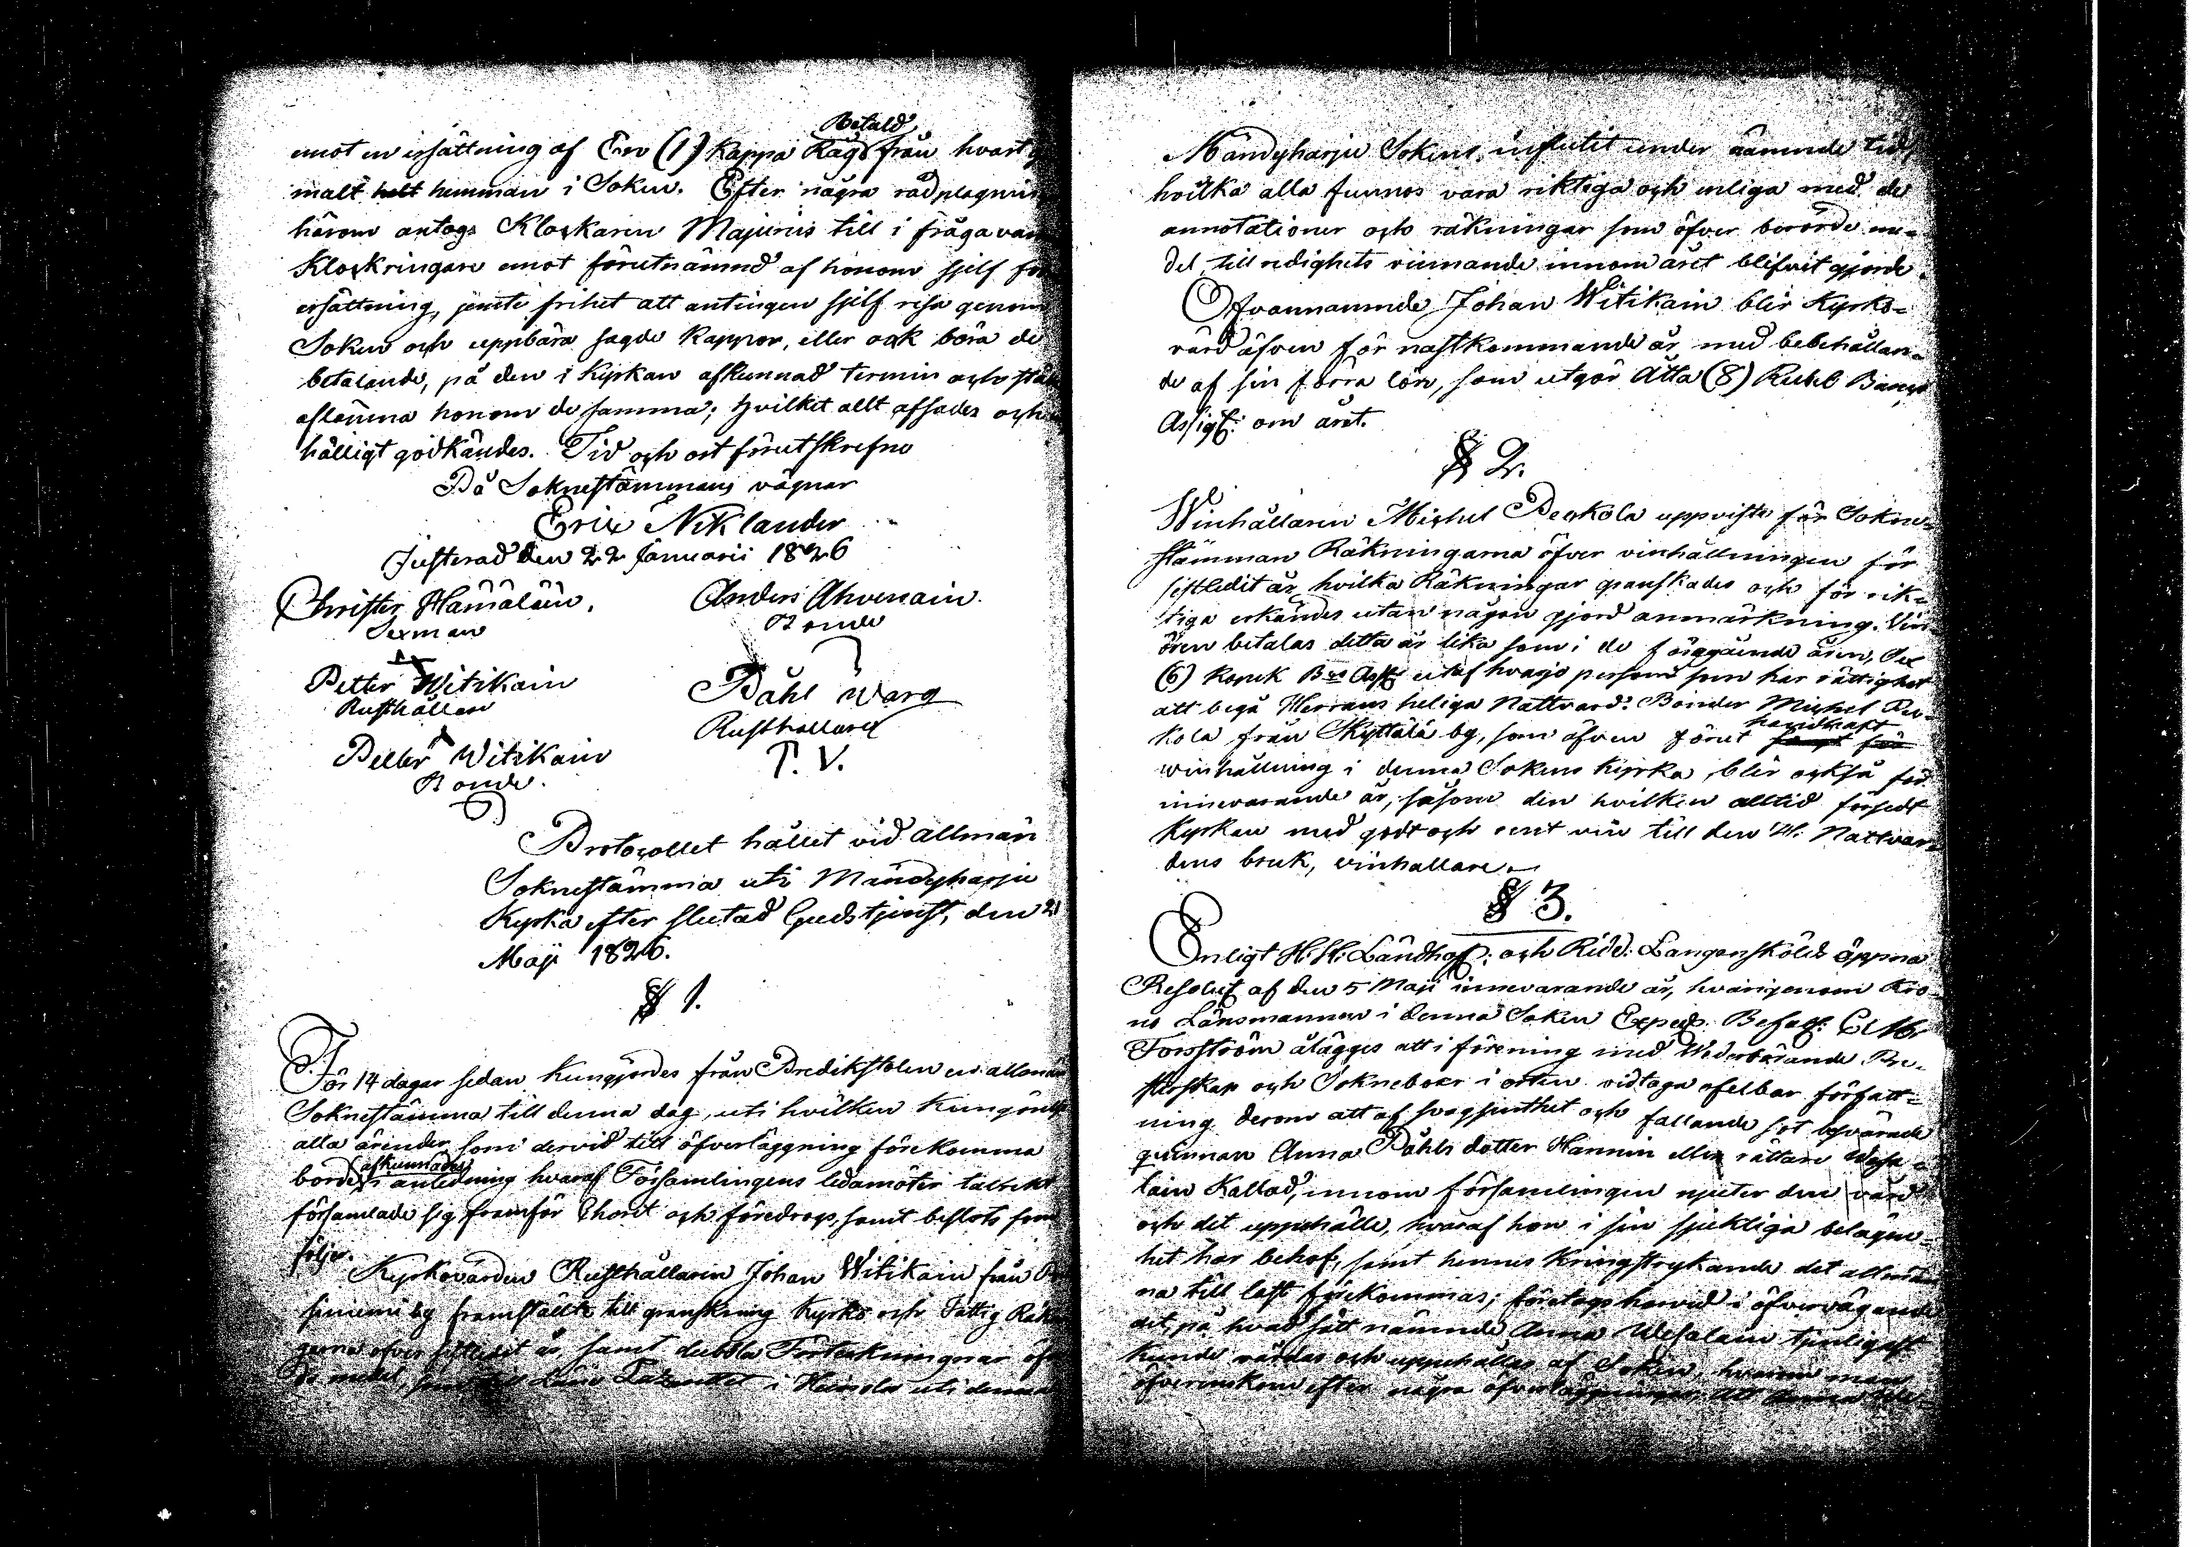 Betald
emot en ersättning af En (1) Kappa Råg från hvart
malt helt hemman i Soken. Efter några rådplagnin
härom antogs Klockaren Majurus till i fråga var
Klockringare emot förutnämnd af honom sjelf för
ersättning, jemte frihet att antingen sjelf resa genom
Soken och uppbära sagde Kappor, eller ock böra de
betalande, på den i Kyrkan afkunnad termin och stäl
aflemna honom de samma; hvilket allt afsades och
hälligt godkändes. Tid och ort förutskrefne
På Soknestämmans vägnar
Eric Niklander
Justerad den 22 Januarii 1826
Christer Hämäläin. Anders Ahvenain.
Sexman Bonde
Petter Witikain Påhl Warg
Rusthållare Rusthållare
Petter Witikain T. V.
Bonde.
Protocollet hållet vid allmän
Soknestämma uti Mändyharju
Kyrka efter slutad Gudstjenst, den 21
Maji 1826.
§ 1.
För 14 dagar sedan kungjordes från Predikstolen en allmän
Soknestämma till denna dag, uti hvilken Kungörelse
alla ärender som dervid till öfverläggning förekomma
afkunnades
borde i anledning hvaraf Församlingens ledamöter talrikt
församlade sig framför Choret och föredrogs, samt beslöts som
följer.
Kyrkovärden Rusthållaren Johan Witikain från
by framstälte till granskning Kyrko och Fattig Räk
garne öfver sistledit år samt dubbla Förteckningnar öfv
de medel, som till Läns Lazarettet i Heinola uti denna
Mändyharju Sokens, influtit under nämnde tid,
hvilka alla funnos vara riktiga och enliga med de
annotationer och räkningar som öfver berörde me-
del, till redighets vinnande innom året blifvit gjorde.
Ofvannamnde Johan Witikain blir Kyrko-
värd äfven för nästkommande år med bebehållan-
de af sin förra lön, som utgör Åtta (8) Rubel Banco
Assign: om året.
§ 2.
Winhållaren Michel Perkola uppviste för Sokne-
stämman Räkningarna öfver vinhållningen för
sistledit år, hvilka Räkningar granskades och för rik-
tiga erkändes utan någon gjord anmärkning. Vin-
ören betalas detta år lika som i de föregående åren, Sex
(6) Kopek Bco Ass utaf hvarje person som har rättighet
att begå Herrans heliga Nattvard. Bonden Michel Per-
kola från Kyttälä by, som äfven förut handhaft
winhållning i denna Sokens Kyrka, blir också för
innevarande år, såsom den hvilken alltid försedt
Kyrkan med godt och rent vin till den H. Nattvar-
dens bruk, vinhållare.
§ 3.
Enligt H. H. Landhöf: och Ridd: Langenskölds öppna
Resolut af den 5 Maji innevarande år, hvarigenom Kro-
no Länsmannen i denna Soken Exped. Befall:
Forsström ålägges att i förening med Wederbörande Pre-
sterskap och Sokneboer i orten vidtaga ofelbar författ-
ning derom att af svagsinthet och fallande sot besvärade
quinnan Anna Påhls dotter Hannin eller rättare Wesa-
lain Kallad, innom församlingen njuter den vård
och det uppehälle, hvaraf hon i sin sjukliga belägen-
het har behof, samt hennes Kringstrykande det allmän-
na till last förekommas; företogs härvid i öfvervägande
det, på hvad sätt nämnde Anna Wesalain tjenligast
kunde vårdas och uppehållas af Soken, hvarom man
öfverenskom efter några öfverläggningar,